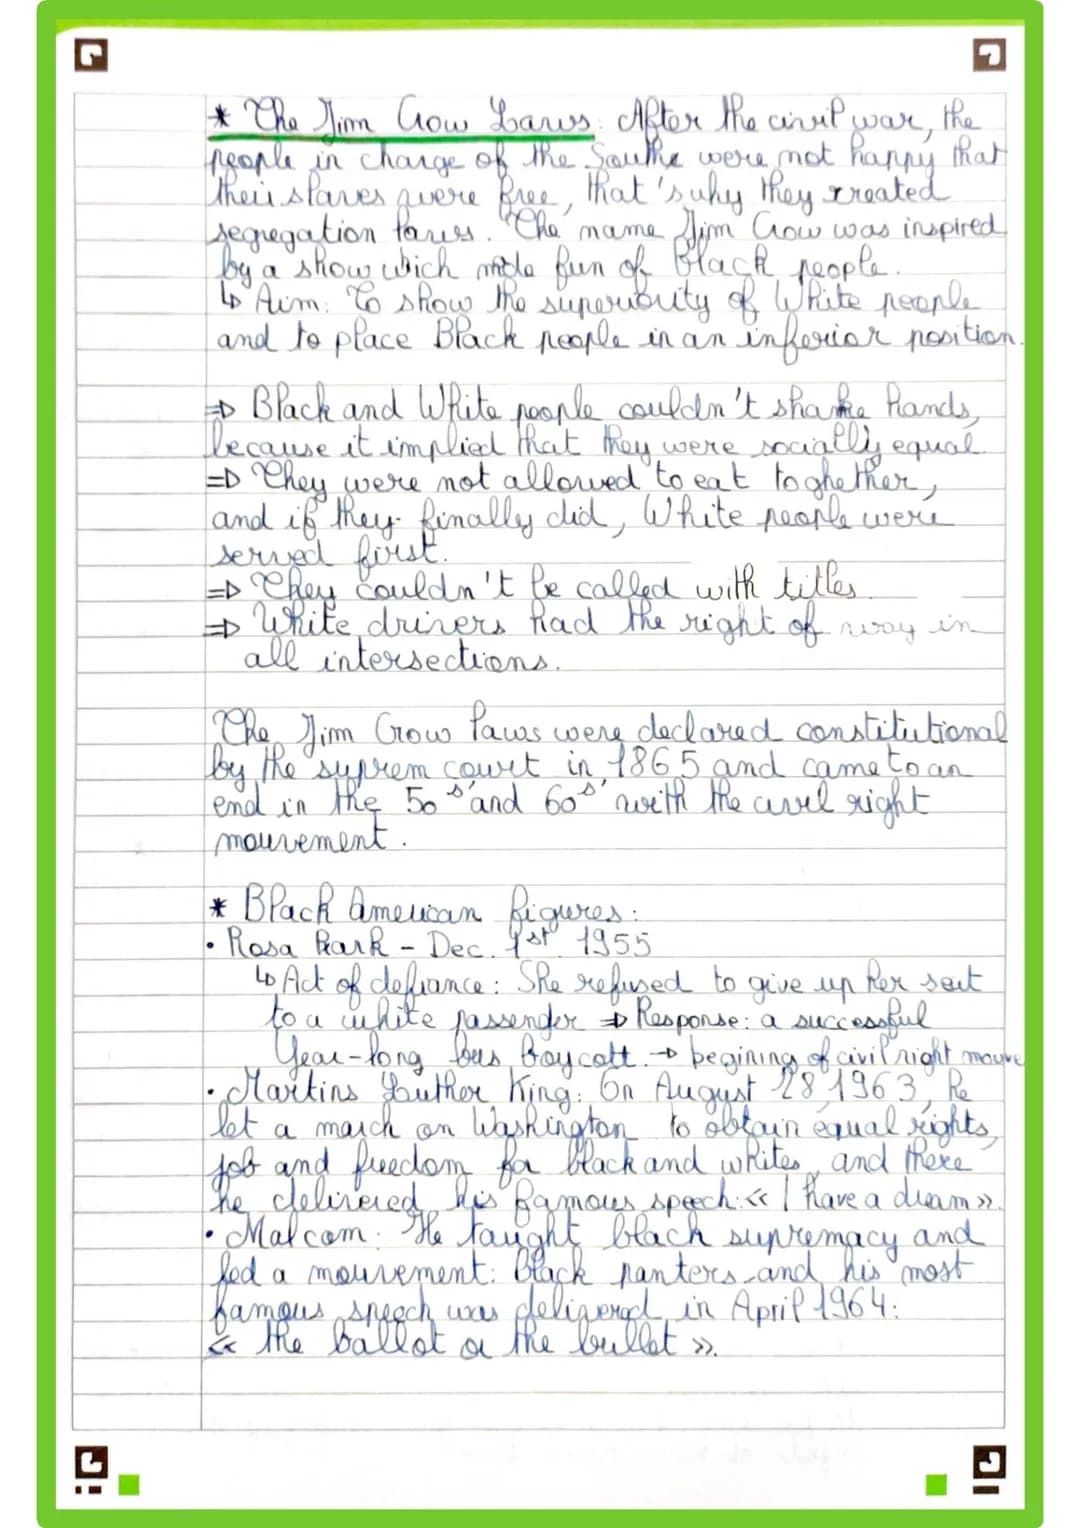 * The Jim Crow Laws: After the civil war, the
people in charge of the Southe were not happy that
their slaves were free, that's why they created
segregation laws. The name Jim Crow was inspired
by a show which made fun of Black people.
↳ Aim: To show the superiority of White people
and to place Black people in an inferior position.
⇒ Black and White people couldn't shake hands,
because it implied that they were socially equal.
⇒ They were not allowed to eat toghether,
and if they finally did, White people were
served first.
⇒ They couldn't be called with titles.
⇒ White drivers had the right of way in
all intersections.
The Jim Crow laws were declared constitutional
by the suprem court in 1865 and came to an
end in the 50s' and 60s' with the civil right
mouvement.
* Black American figures:
• Rosa Park - Dec. 1st 1955
↳ Act of defiance: She refused to give up her seat
to a white passenger ⇒ Response: a successful
Year-long bus boycott. → begining of civil right mouve
• Martins Luther King: On August 28 1963, he
let a march on Washington to obtain equal rights,
job and freedom for black and whites, and there
he delivered his famous speech: « I have a dream ».
• Malcom: He taught black supremacy and
led a mouvement: Black panters and his most
famous speech was delivered in April 1964:
« the ballot or the bullet ».